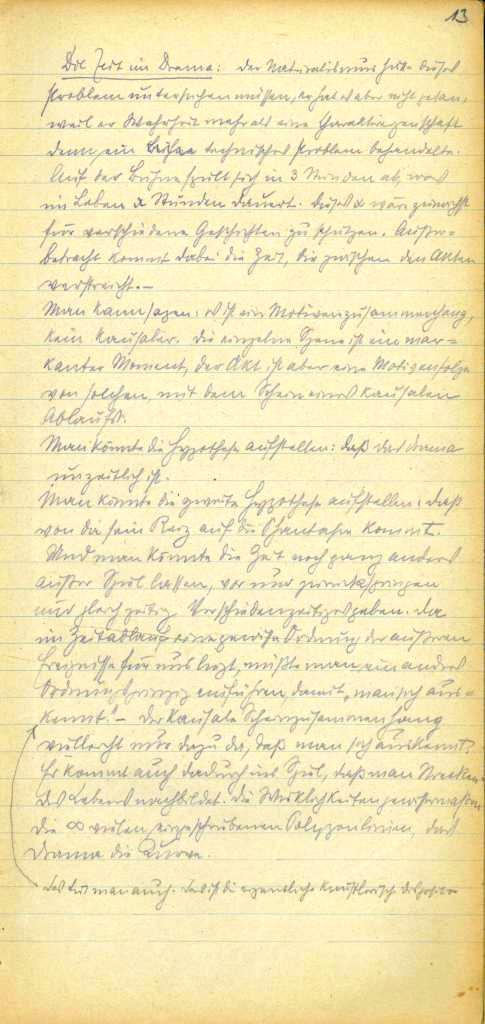 13
Die Zeit im Drama: Der Naturalismus hätte dieses
Problem untersuchen müssen, er hat es aber nicht getan,
weil er Wahrheit mehr als eine Charaktereigenschaft
denn ein technisches Problem behandelte.
Auf der Bühne spielt sich in 3 Stunden ab, was
im Leben x Stunden dauert. Dieses x wäre zunächst
für verschiedene Geschichten zu schätzen. Außer-
betracht kommt dabei die Zeit, die zwischen den Akten
verstreicht. –
Man kann sagen: es ist ein Motivenzusammenhang,
kein kausaler. Die einzelne Szene ist ein mar-
kanter Moment, der Akt ist aber eine Motivenfolge
von solchen, mit dem Schein eines kausalen
Ablaufs.
Man könnte die Hypothese aufstellen: daß das Drama
unzeitlich ist.
Man könnte die zweite Hypothese aufstellen: daß
von da sein Reiz auf die Phantasie kommt.
Und man könnte die Zeit noch ganz anders
außer Spiel lassen, vor und zurückspringen
und gleichzeitig Verschiedenzeitiges geben. Da
im Zeitablauf eine gewisse Ordnung der äußeren
Ereignisse für uns liegt, müßte man ein anderes
Ordnungsprinzip einführen, damit „man sich aus-
kennt." – Der kausale Scheinzusammenhang
vielleicht nur dazu da, daß man sich auskennt?
Er kommt auch dadurch ins Spiel, daß man Strecken
des Lebens nachbildet. Die Wirklichkeiten gewissermaßen
die ∞ vielen eingeschriebenen Polygonlinien, das
Drama die Kurve.
Das tut man auch. Das ist die eigentliche künstlerische